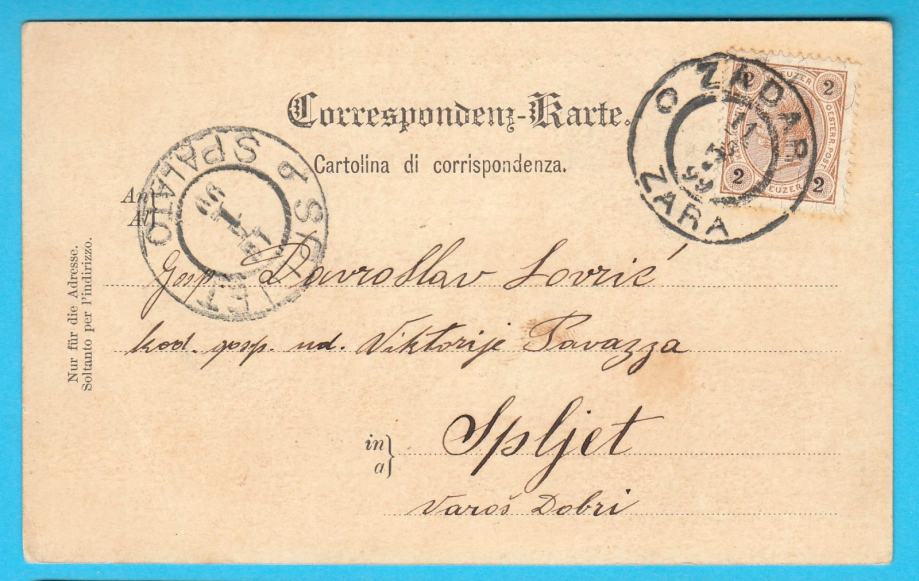 Correspondenz-Karte.
Cartolina di corrispondenza.
ZADAR
11
99
ZARA
2 KREUZER 2
OESTERR. POST
2 KREUZER 2
SPLJET
SPALATO
An
A
Nur für die Adresse.
Soltanto per l'indirizzo.
Gosp. Davroslav Lovrić
kod. gosp. ud. Viktorije Pavazza
in
a
Spljet
Varoš Dobri